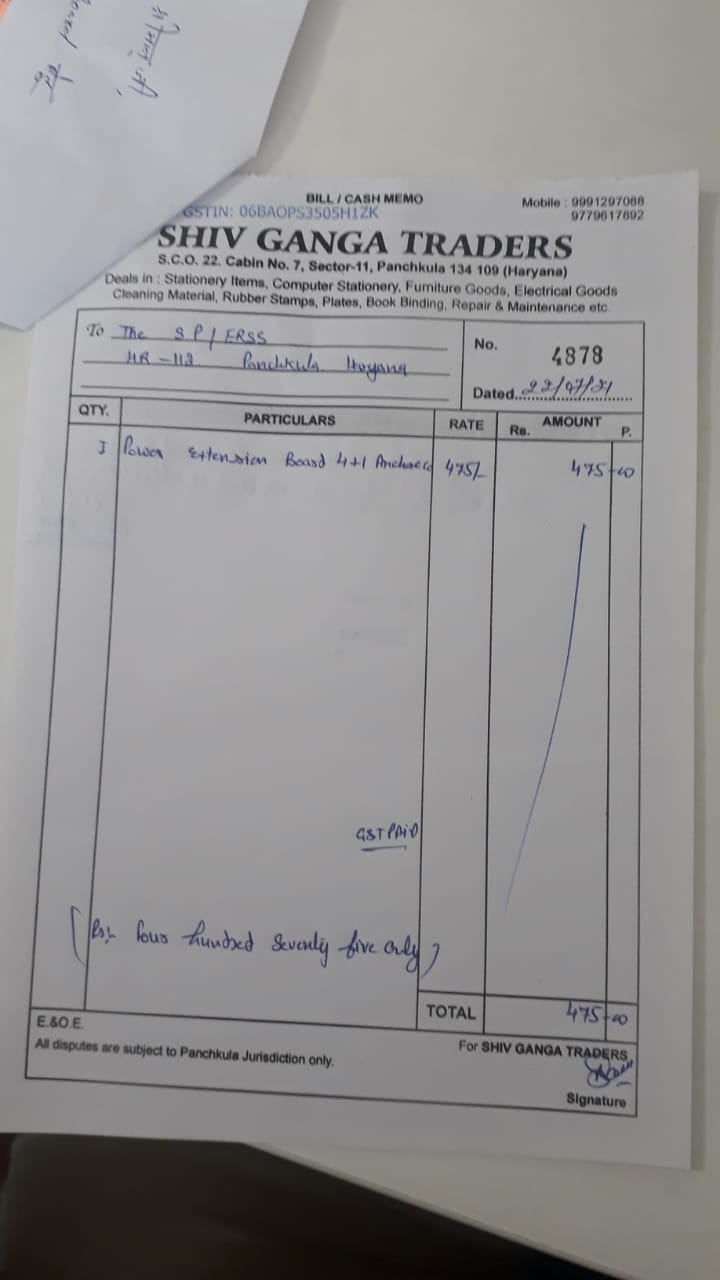 BILL / CASH MEMO
Mobile : 9991297088
9779617892
GSTIN: 06BAOPS3505H1ZK
SHIV GANGA TRADERS
S.C.O. 22. Cabin No. 7, Sector-11, Panchkula 134 109 (Haryana)
Deals in : Stationery Items, Computer Stationery, Furniture Goods, Electrical Goods
Cleaning Material, Rubber Stamps, Plates, Book Binding, Repair & Maintenance etc.
To The SP/ERSS
HR-112 Panchkula Haryana
No. 4878
Dated 22/07/21
QTY. PARTICULARS RATE AMOUNT
Rs. P.
1 Power Extension Board 4+1 475/- 475-00
GST PAID
[Rs:- Four hundred Seventy five only]
TOTAL 475-00
E.&O.E.
All disputes are subject to Panchkula Jurisdiction only.
For SHIV GANGA TRADERS
Signature